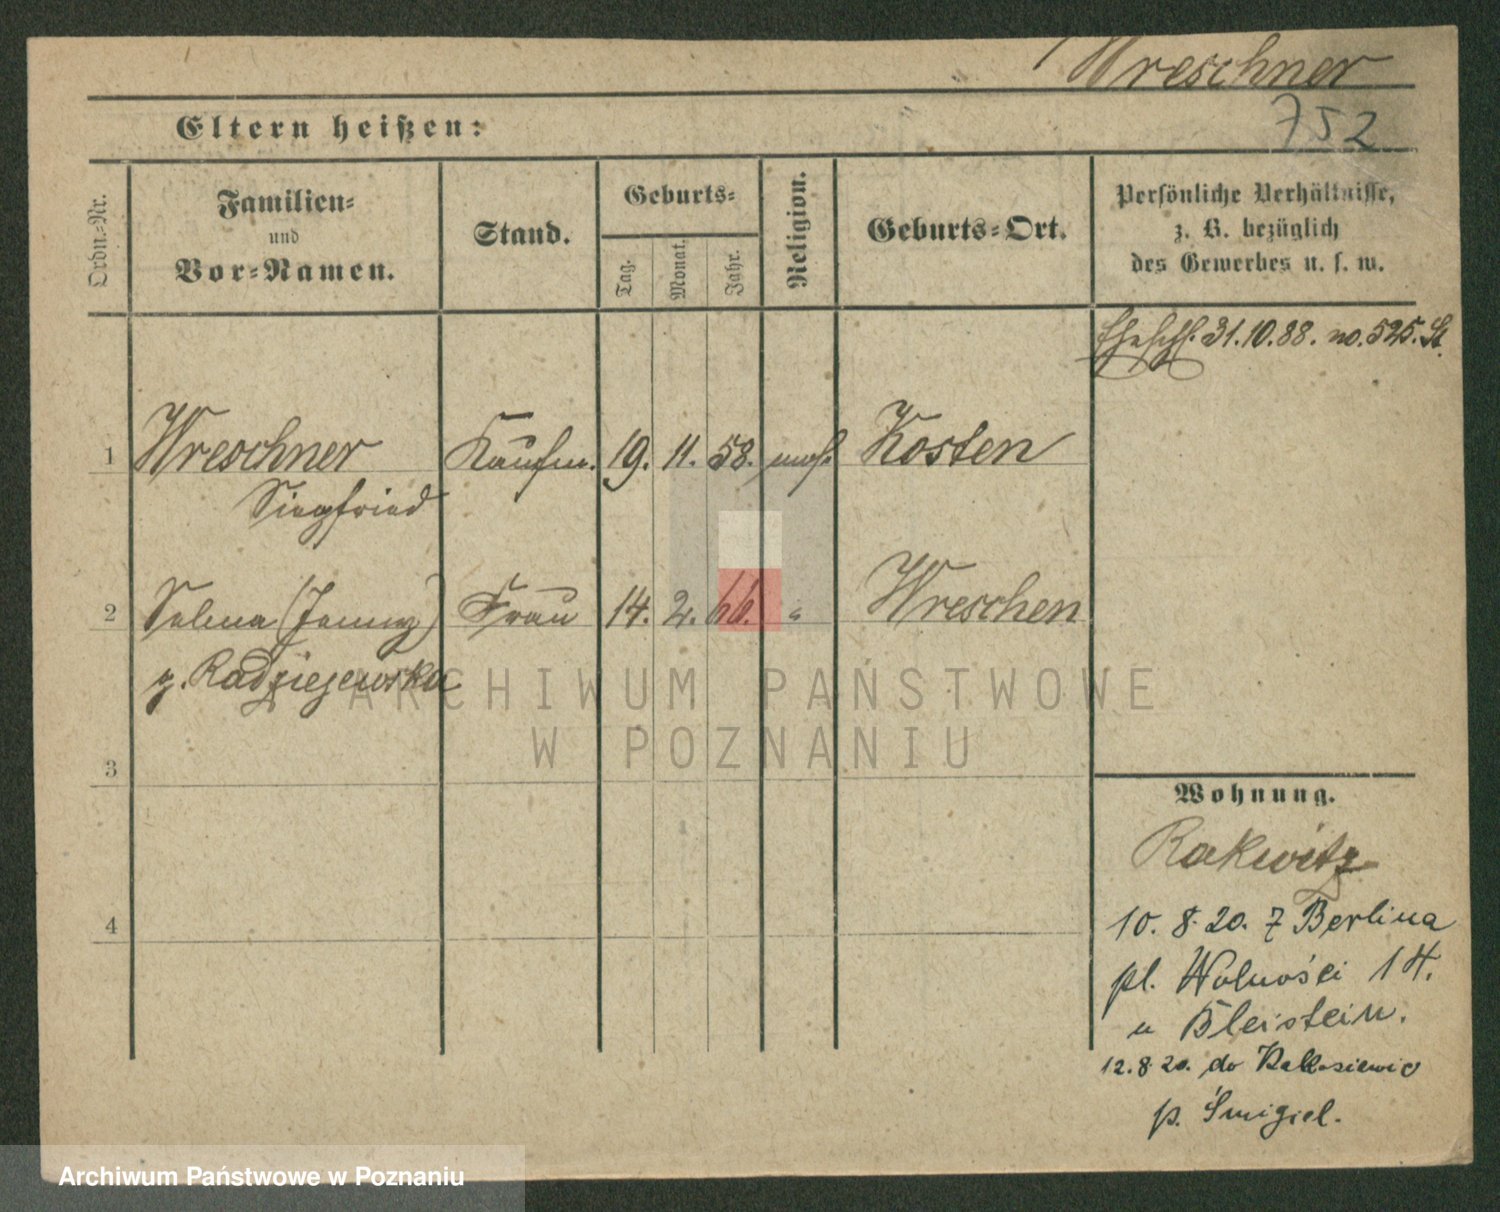 Wreschner
752
Eltern heißen:
Ordn.-Nr.
Familien-
und
Vor-Namen.
Stand.
Geburts-
Tag.
Monat.
Jahr.
Religion.
Geburts-Ort.
Persönliche Verhältnisse,
z. B. bezüglich
des Gewerbes u. s. w.
Eheschl. 31.10.88. no. 525. St.
1 Wreschner Kaufm. 19. 11. 58. mos. Kosten
Siegfried
2 Selma (Jenny) Frau 14. 2. 66. " Wreschen
g. Radziejewska
ARCHIWUM PAŃSTWOWE
W POZNANIU
3
Wohnung.
Rakwitz
4
10. 8. 20. z Berlina
pl. Wolności 14.
u Bleistein.
12. 8. 20. do
p. Śmigiel.
Archiwum Państwowe w Poznaniu